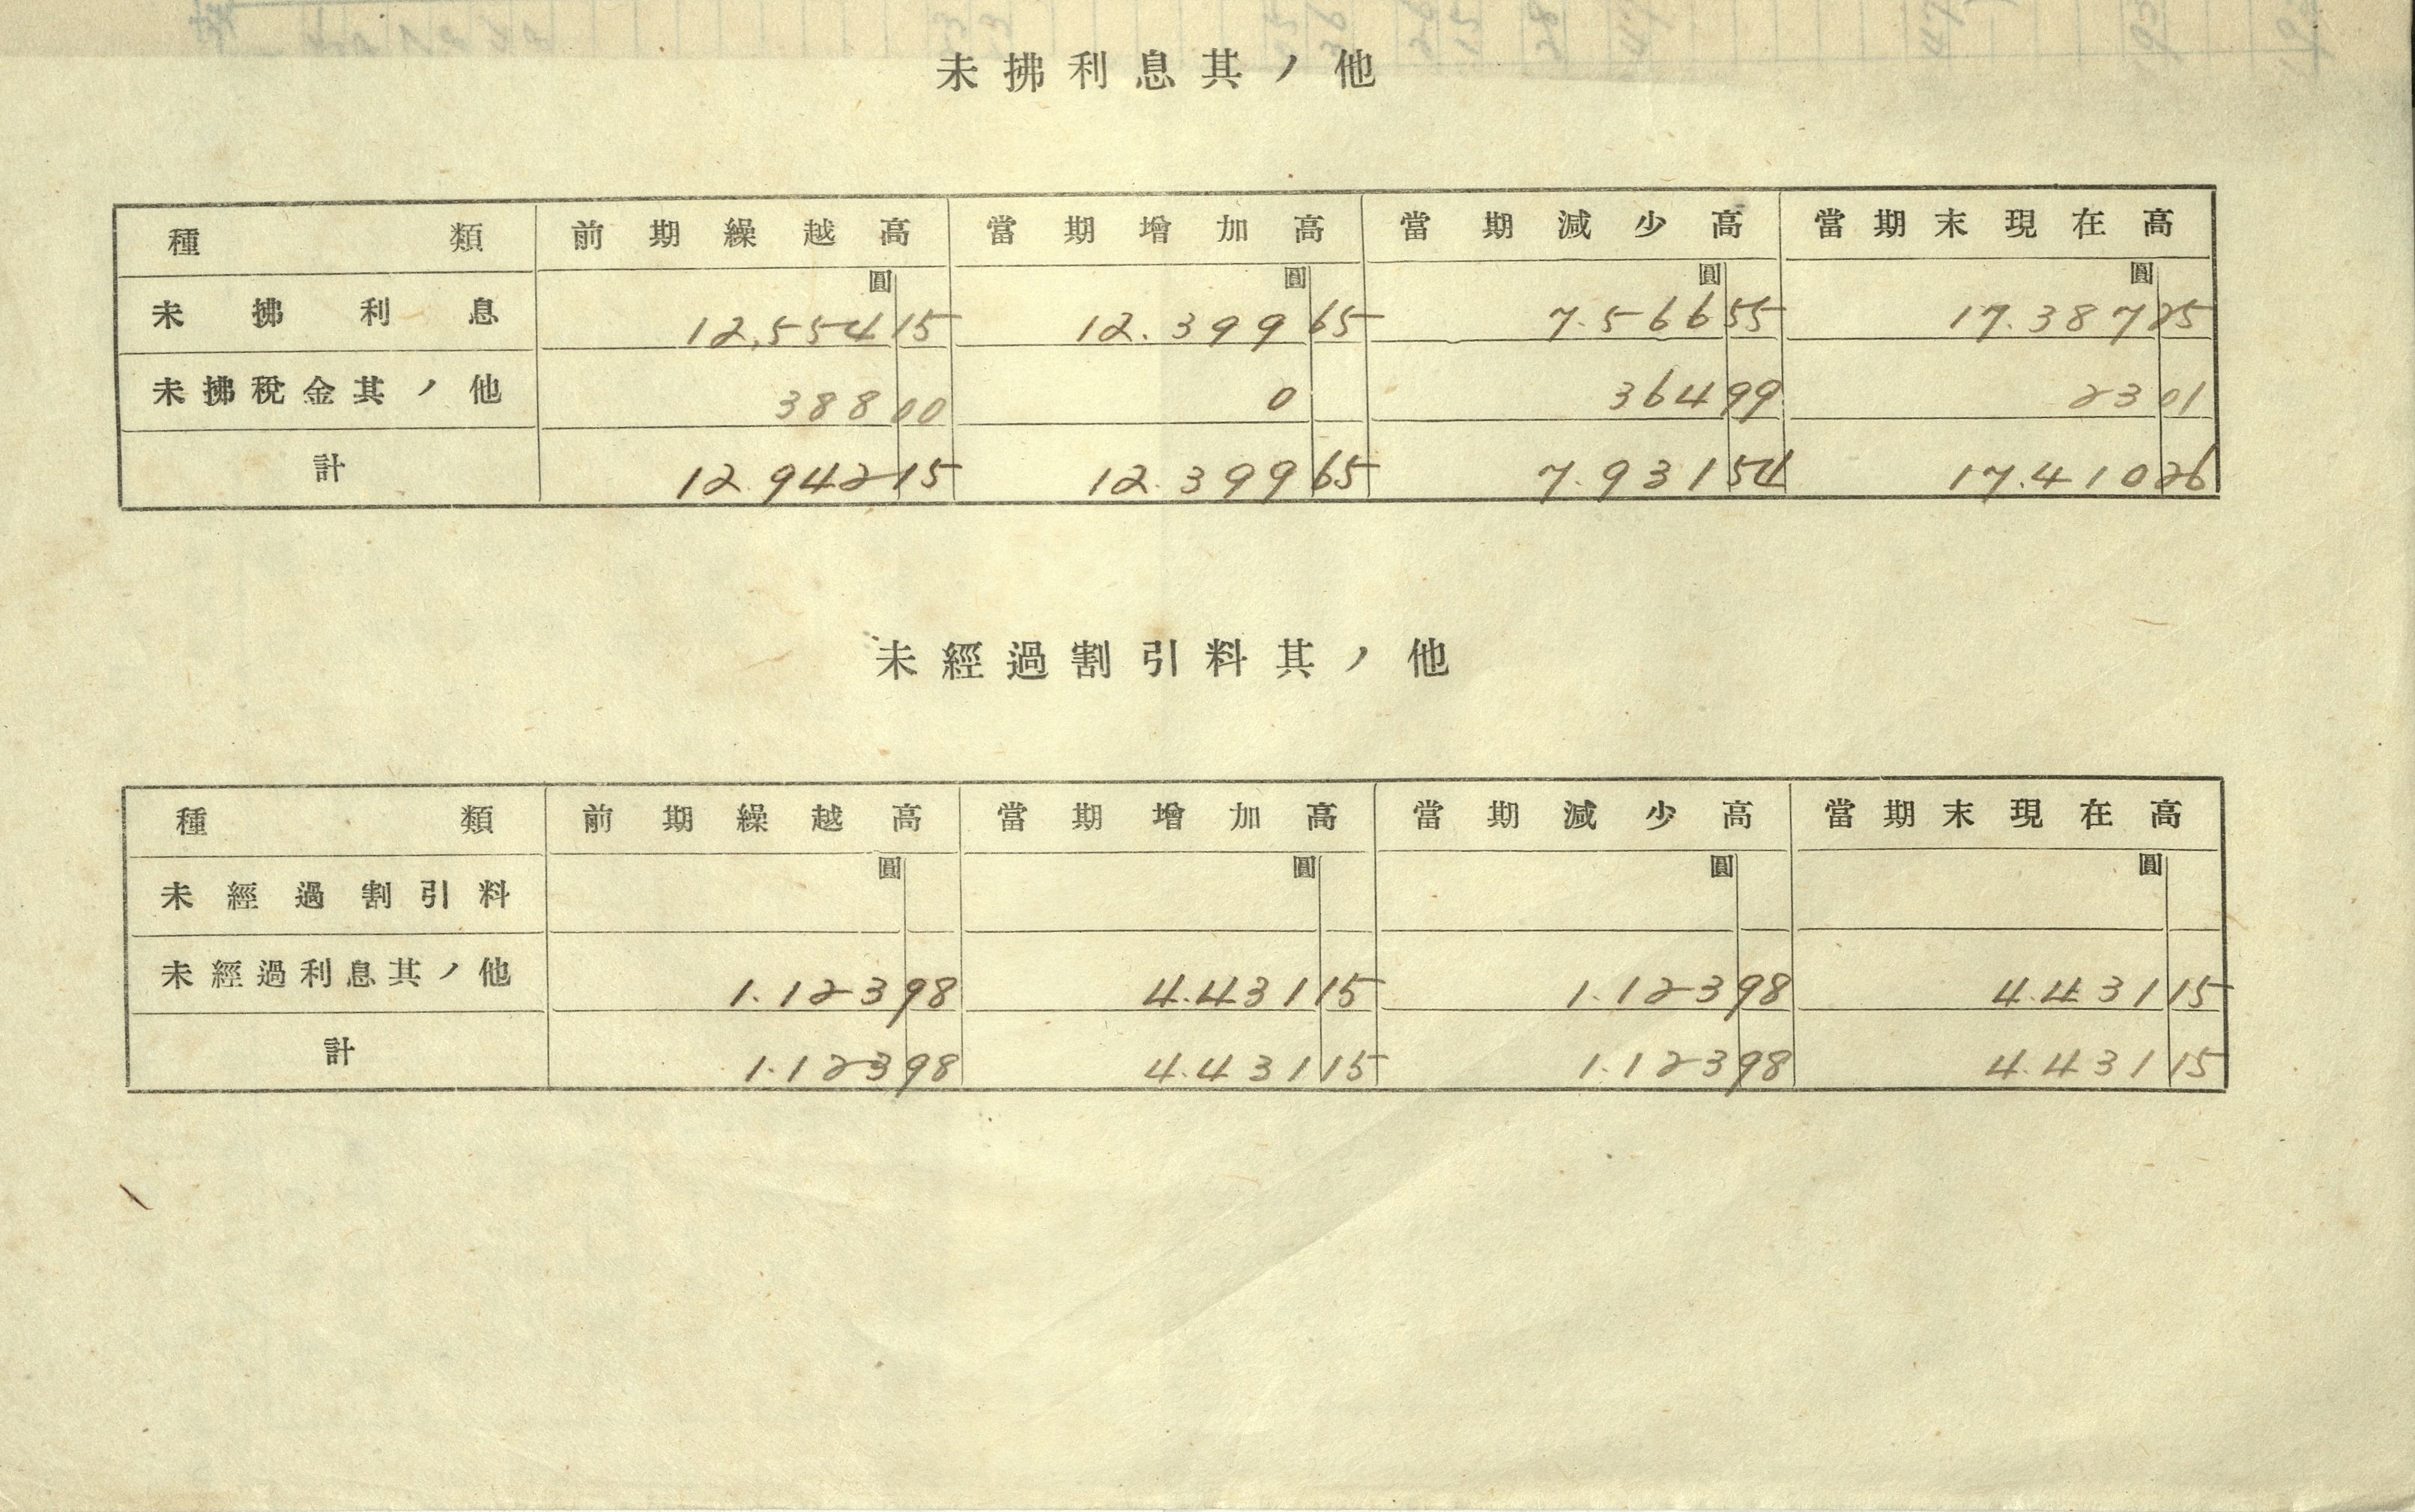 未拂利息其ノ他
種類 前期繰越高 當期增加高 當期減少高 當期末現在高
圓 圓 圓 圓
未拂利息 12,554 15 12.399 65 7.566 55 17.387 25
未拂稅金其ノ他 388 00 0 364 99 23 01
計 12.942 15 12.399 65 7.931 54 17.410 26
未經過割引料其ノ他
種類 前期繰越高 當期增加高 當期減少高 當期末現在高
圓 圓 圓 圓
未經過割引料
未經過利息其ノ他 1.123 98 4.431 15 1.123 98 4.431 15
計 1.123 98 4.431 15 1.123 98 4.431 15